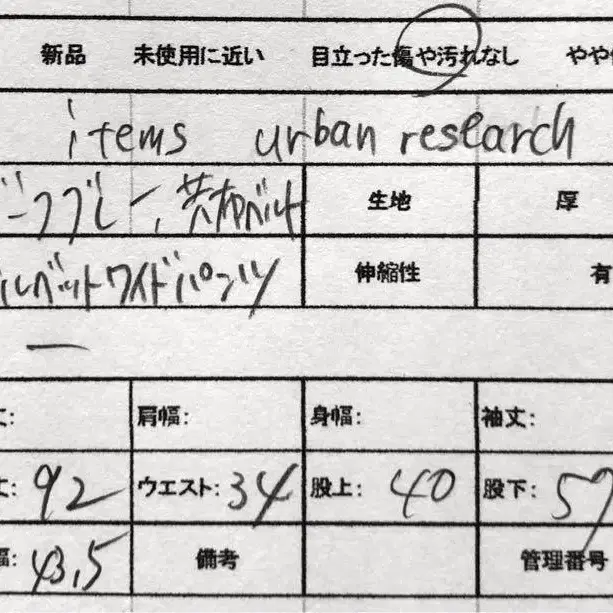 新品 未使用に近い 目立った傷や汚れなし やや
items urban research
ーフブレー、共布ベルト 生地 厚
ルベットワイドパンツ 伸縮性 有
—
丈: 肩幅: 身幅: 袖丈:
丈: 92 ウエスト: 34 股上: 40 股下: 57
幅: 43,5 備考 管理番号